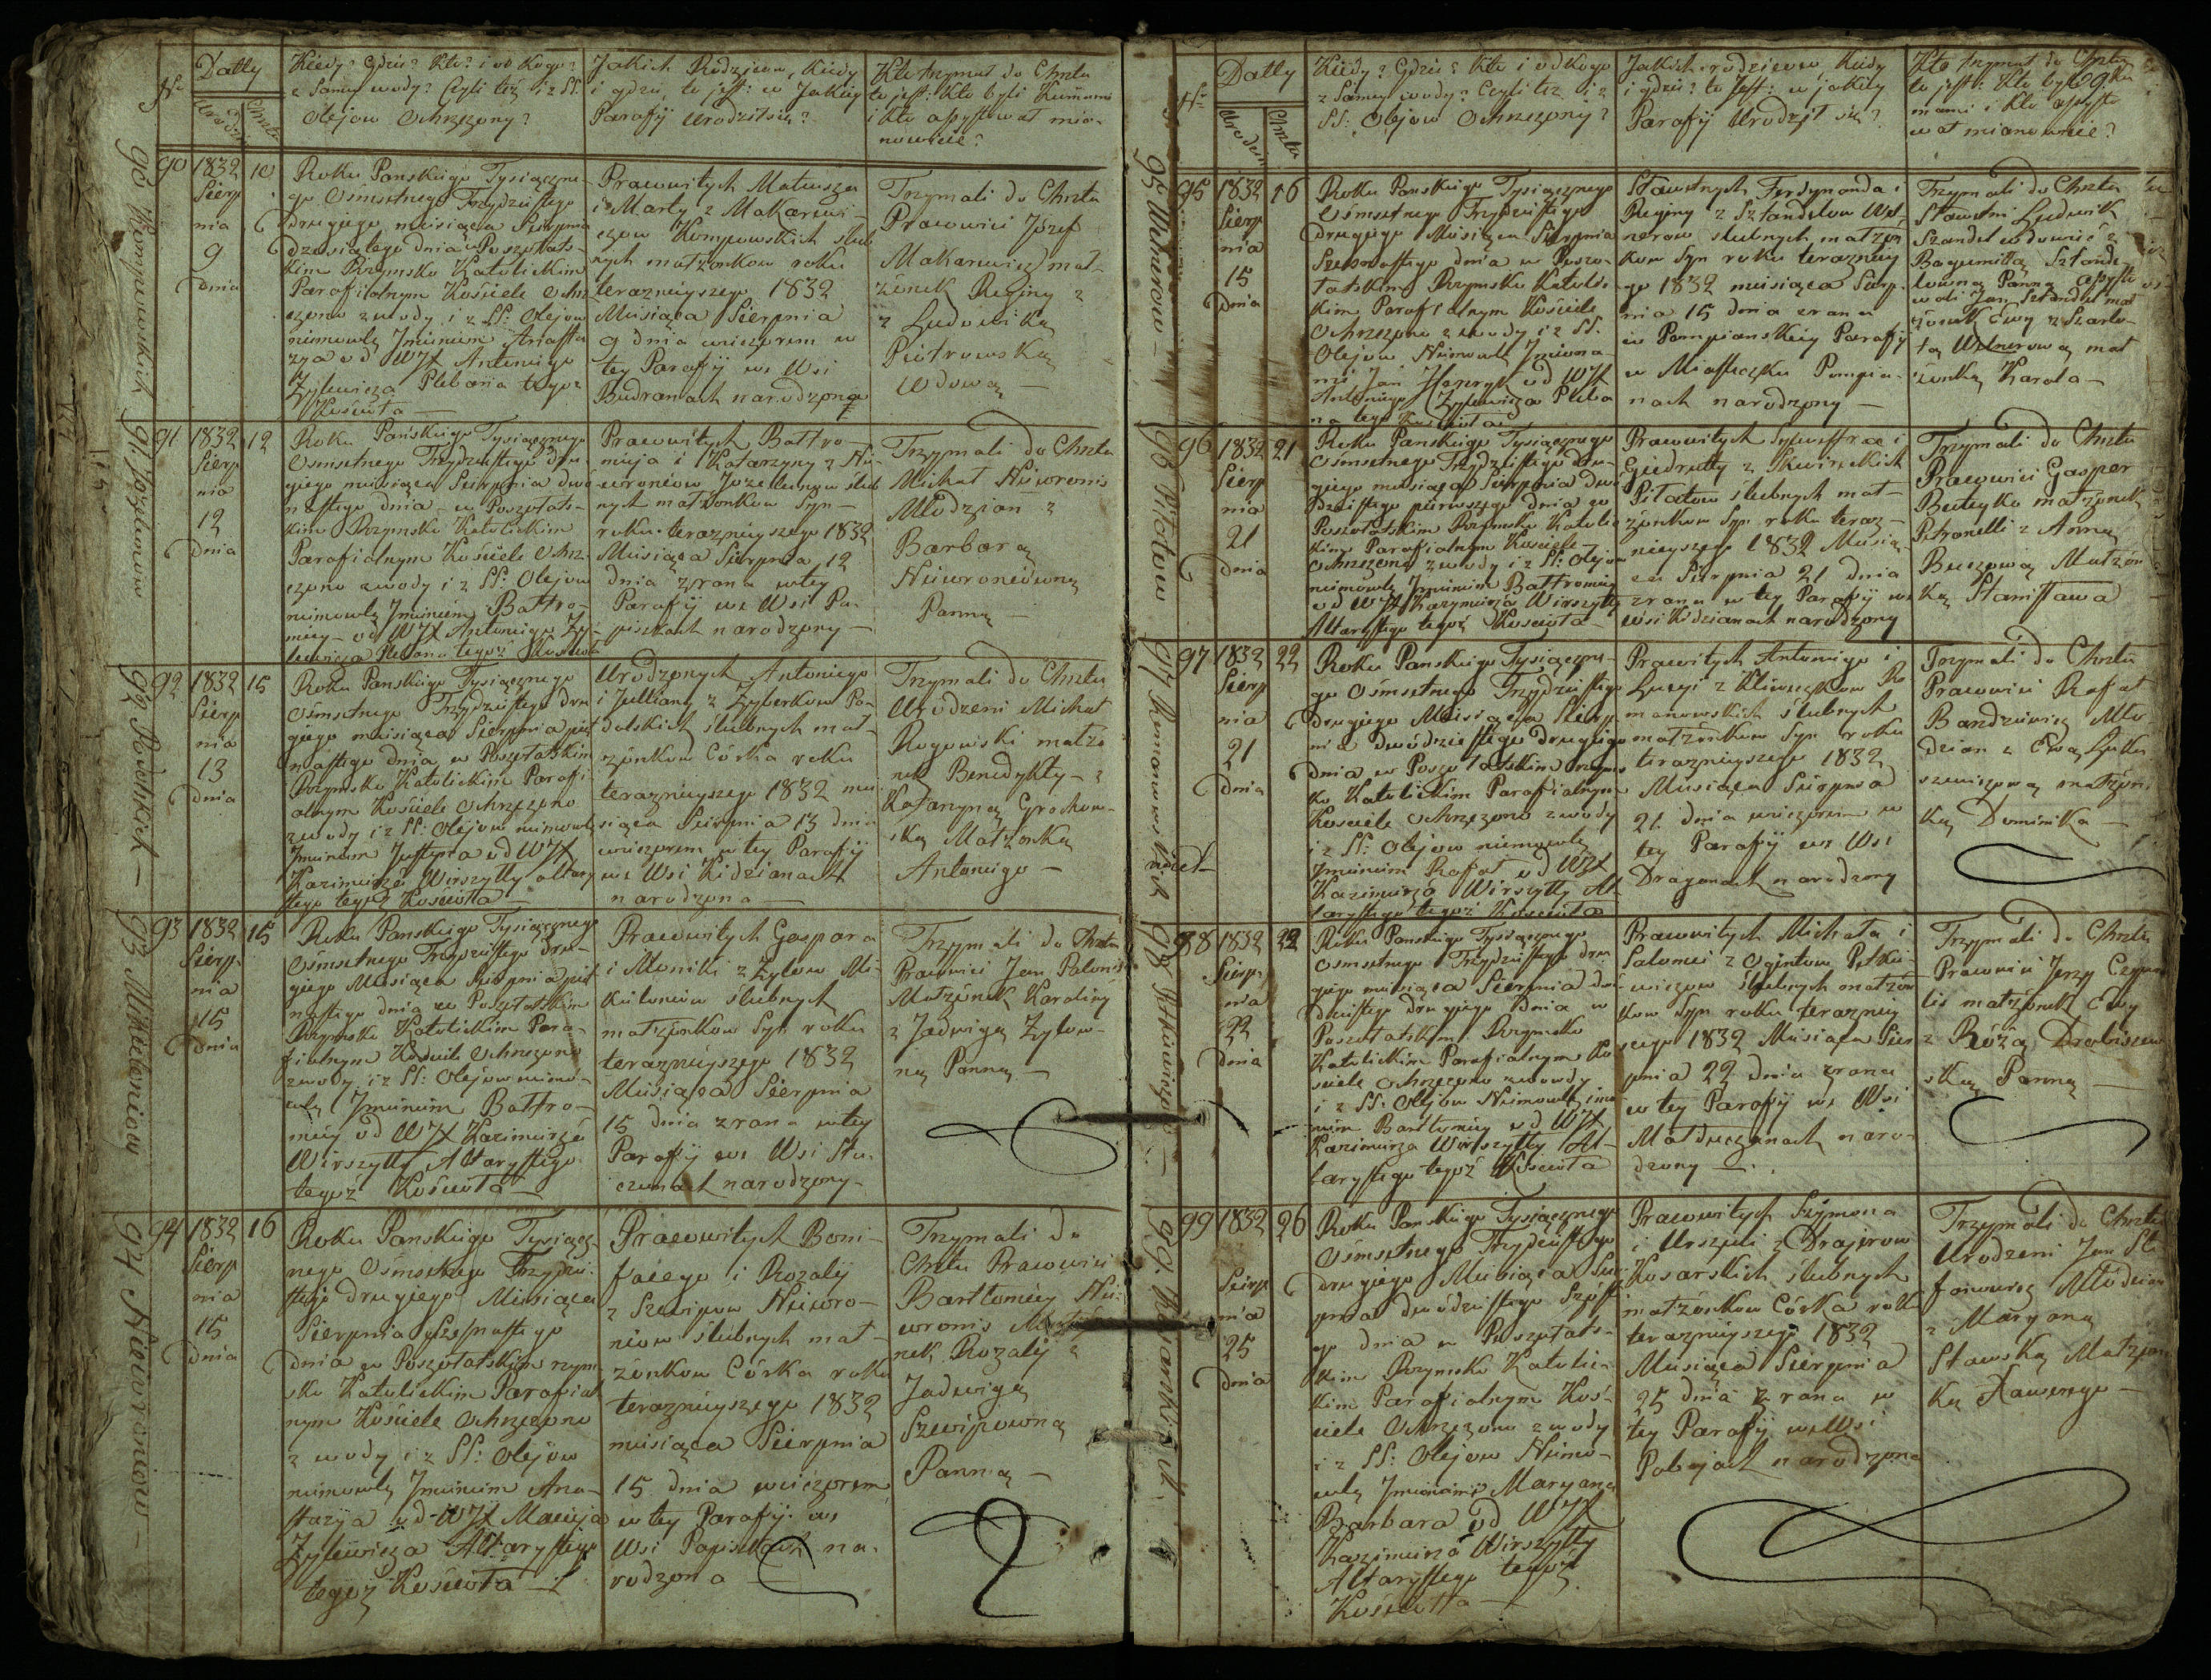 Nr
Datty
Urodze
Chrztu
Kiedy? Gdzie? Kto? i od Kogo?
z Samey wody? Czyli też i z SS:
Olejow Ochrzczony?
Jakich Rodzicow, Kiedy
i gdzie, to jest: w Jakiey
Parafij urodził się?
Kto trzymał do Chrztu
to jest: Kto byli Kumami
i Kto assystował mia-
nowicie?
90
1832
Sierp
nia
9
Dnia
10
Roku Panskiego Tysiączne-
go Ośmsetnego Trzydziestego
drugiego miesiąca Sierpnia
dziesiątego dnia w Poszołats-
kim Rzymsko Katolickim
Parafialnym Kościele Ochrz-
czono z wody i z SS: Olejow
niemowlę Imieniem Anasta
zya od WJX Antoniego
Żylewicza Plebana tegoż
Kościoła —
Pracowitych Mateusza
i Marty z Makarewi-
czow Kompowskich ślub
nych małżonkow roku
teraznieyszego 1832
Miesiąca Sierpnia
9 dnia wieczorem w
tey Parafij we Wsi
Budranach narodzona
Trzymali do Chrztu
Pracowici Józef
Makarewicz mał-
żonek Reginy z
z Ludowiką
Piotrowską
wdową —
91. Jozeliunow
91
1832
Sierp
nia
12
Dnia
12
Roku Pańskiego Tysiącznego
Ośmsetnego Trzydziestego dru-
giego miesiąca Sierpnia dwo-
nastego dnia w Poszołats-
kim Rzymsko Katolickim
Parafialnym Kościele Ochrz-
czono z wody i z SS: Olejow
niemowlę Imieniem Bałtro-
miey — od WJX Antoniego Ży-
lewicza Plebana tegoż Kościoła
Pracowitych Bałtro-
mieja i Katarzyny z Nie-
wroniow Jozeliunow ślub
nych małżonkow Syn —
roku teraznieyszego 1832
Miesiąca Sierpnia 12
dnia z rana w tey
Parafij we Wsi Pa-
piszkach narodzony —
Trzymali do Chrztu
Michał Niewronis
Młodzian z
Barbarą
Niewroniowną
Panną —
92
1832
Sierp
nia
13
Dnia
15
Roku Panskiego Tysiącznego
Ośmsetnego Trzydziestego dru
giego miesiąca Sierpnia pięt
nastego dnia w Poszołatskim
Rzymsko Katolickim Parafi-
alnym Kościele Ochrzczono
z wody i z SS: Olejow niemowlę
Imieniem Justyna od WJX
Kazimierza Wirszyłły Altary
stego tegoż Kościoła —
Urodzonych Antoniego
i Julliany z Zyberkow Po-
dolskich ślubnych mał-
żonkow Córka roku
teraznieyszego 1832 mie
siąca Sierpnia 13 dnia
wieczorem w tey Parafij
we Wsi Kidzianach
narodzona —
Trzymali do Chrztu
Urodzeni Michał
Rogowiski małżo
nek Benedykty — z
Katarzyną Grochow-
ską Małżonką
Antoniego —
93 Mikieloniow
93
1832
Sierp.
nia
15
Dnia
15
Roku Panskiego Tysiącznego
Ośmsetnego Trzydziestego dru-
giego Miesiąca Sierpnia pięt
nastego dnia w Poszołatskim
Rzymsko Katolickim Para-
fialnym Kościele Ochrzczono
z wody i z SS: Olejow niemo-
wlę Imieniem Bałtro-
miey od WJX Kazimierza
Wirszyłły Altarystego
tegoż Kościoła —
Pracowitych Gaspara
i Moniki z Żylow Mi-
kieloniow ślubnych
małżonkow Syn roku
teraznieyszego 1832
Miesiąca Sierpnia
15 dnia z rana w tey
Parafij we Wsi Stu-
czunach narodzony —
Trzymali do Chrztu
Pracowici Jan Polonis
Małżonek Karoliny
z Jadwigą Żyłow-
ną Panną —
94 Niewroniow —
94
1832
Sierp
nia
15
Dnia
16
Roku Panskiego Tysiącz-
nego Ośmsetnego Trzydzie-
stego drugiego Miesiąca
Sierpnia Szesnastego
dnia w Poszołatskim rzym
sko Katolickim Parafial
nym Kościele Ochrzczono
z wody i z SS: Olejow
niemowlę Imieniem Ana-
stazyja od WJX Macieja
Żylewicza Altarystego
tegoż Kościoła —
Pracowitych Boni-
facego i Rozalij
z Szewipow Niewro-
niow ślubnych mał-
żonkow Córka roku
teraznieyszego 1832
miesiąca Sierpnia
15 dnia wieczorem
w tey Parafij we
Wsi Papiszkach na-
rodzona
Trzymali do
Chrztu Pracowici
Bartłomiey Nie-
wronis Małżo
nek Rozalij z
Jadwigą
Szewipowną
Panną —
Nr
Datty
Urodzen
Chrztu
Kiedy? Gdzie? Kto i od kogo
z Samey wody? Czyli też i z
SS. Olejow Ochrzczony?
Jakich rodzicow, Kiedy
i gdzie? to Jest: w jakiey
Parafij Urodził się?
Kto trzymał do Chrztu
to jest: Kto byli Ku
mami i kto assysto
wał mianowicie?
95 Welnerow —
95
1832
Sierp
nia
15
Dnia
16
Roku Panskiego Tysiącznego
Ośmsetnego Trzydziestego
drugiego Miesiąca Sierpnia
Szesnastego dnia w Poszo-
łatskim Rzymsko Katolic-
kim Parafialnym Kościele
Ochrzczono z wody i z SS.
Olejow Niemowlę Imiona-
mi Jan Henryk od WJX
Antoniego Żylewicza Pleba
na tegoż Kościoła
Sławetnych Ferdynanda i
Reginy z Sztandelow Wel-
nerow ślubnych małżon
kow Syn roku terazniey
go 1832 miesiąca Sierp-
nia 15 dnia z rana
w Pompianskiey Parafij
w Miasteczku Pompia-
nach narodzony —
Trzymali do Chrztu
Sławetni Ludwik
Szandel wdowiec z
Bagumiłłą Sztande-
lowną Panną assysto
wali Jan Sztandel mał
żonek Ewy z Szarlo-
tą Welnerową mał
żonką Karola —
96 Pilatow
96
1832
Sierp
nia
21
Dnia
21
Roku Panskiego Tysiącznego
Ośmsetnego Trzydziestego dru-
giego miesiąca Sierpnia dwó
dziestego pierwszego dnia w
Poszołatskim Rzymsko Katolic
kim Parafialnym Kościele —
Ochrzczono z wody i z SS: Olejow
niemowlę Imieniem Bałtromiey
od WJX Kazimierza Wirszyłły
Altarystego tegoż Kościoła —
Pracowitych Sylwestra i
Giedrutty z Skwireckich
Pilatow ślubnych mał-
żonkow Syn roku teraz-
nieyszego 1832 Miesią-
ca Sierpnia 21 dnia
z rana w tey Parafij we
wsi Kidzianach narodzony
Trzymali do Chrztu
Pracowici Gasper
Buteyko małżonek
Petronelli z Anną
Małżon
ką Stanisława
97 Romanowskich
97
1832
Sierp
nia
21
Dnia
22
Roku Panskiego Tysiączne-
go Ośmsetnego Trzydziestego
drugiego Miesiąca Sierp-
nia dwódziestego drugiego
dnia w Poszołatskim rzyms
ko Katolickim Parafialnym
Kościele Ochrzczono z wody
i z SS: Olejow niemowlę
Imieniem Rafał od WJX
Kazimierza Wirszyłły Al
tarystego tegoż Kościoła
Pracowitych Antoniego i
Lucyi z Klimeszkow Ro
manowskich ślubnych
małżonkow Syn roku
teraznieyszego 1832
Miesiąca Sierpnia
21 dnia wieczorem w
tey Parafij we Wsi
Draganach narodzony
Trzymali do Chrztu
Pracowici Rafał
Bandziewicz Mło
dzian z Ewą Łuka
szewiczową małżon-
ką Dominika —
98
1832
Sierp.
nia
22
Dnia
22
Roku Panskiego Tysiącznego
Ośmsetnego Trzydziestego dru
giego miesiąca Sierpnia dwó-
dziestego drugiego dnia w
Poszołatskim Rzymsko
Katolickim Parafialnym Ko
sciele Ochrzczono z wody
i z SS: Olejow Niemowlę imie
niem Bartłomiey od WJX
Kazimierza Wirszyłły Al-
tarystego tegoż Kościoła
Pracowitych Michała i
Salomei z Ogintow Petkie-
wiczow ślubnych małżon
kow Syn roku terazniey
szego 1832 Miesiąca Sier
pnia 22 dnia z rana
w tey Parafij we Wsi
Małduczanach naro-
dzony —
Trzymali do Chrztu
Pracowici Jerzy
małżonek Ewy
z Różą Drobiszew
ską Panną —
99
1832
Sierp
nia
25
Dnia
26
Roku Panskiego Tysiącznego
Ośmsetnego Trzydziestego
drugiego Miesiąca Sier
pnia dwódziestego Szóste
go dnia w Poszołats-
kim Rzymsko Katolic-
kim Parafialnym Koś-
ciele Ochrzczono z wody
i z SS: Olejow Niemo-
wlę Imionami Maryana
Barbara od WJX
Kazimierza Wirszyłły
Altarystego tegoż
Kościoła —
Pracowitych Szymona
i Urszuli z Drajerow
Kosarskich ślubnych
małżonkow Córka roku
teraznieyszego 1832
Miesiąca Sierpnia
25 dnia z rana w
tey Parafij we Wsi
Pobojach narodzona
Trzymali do Chrztu
Urodzeni Jan Ste
fanowicz Młodzian
z Maryaną
Sławską Małżon
ką Xawerego —